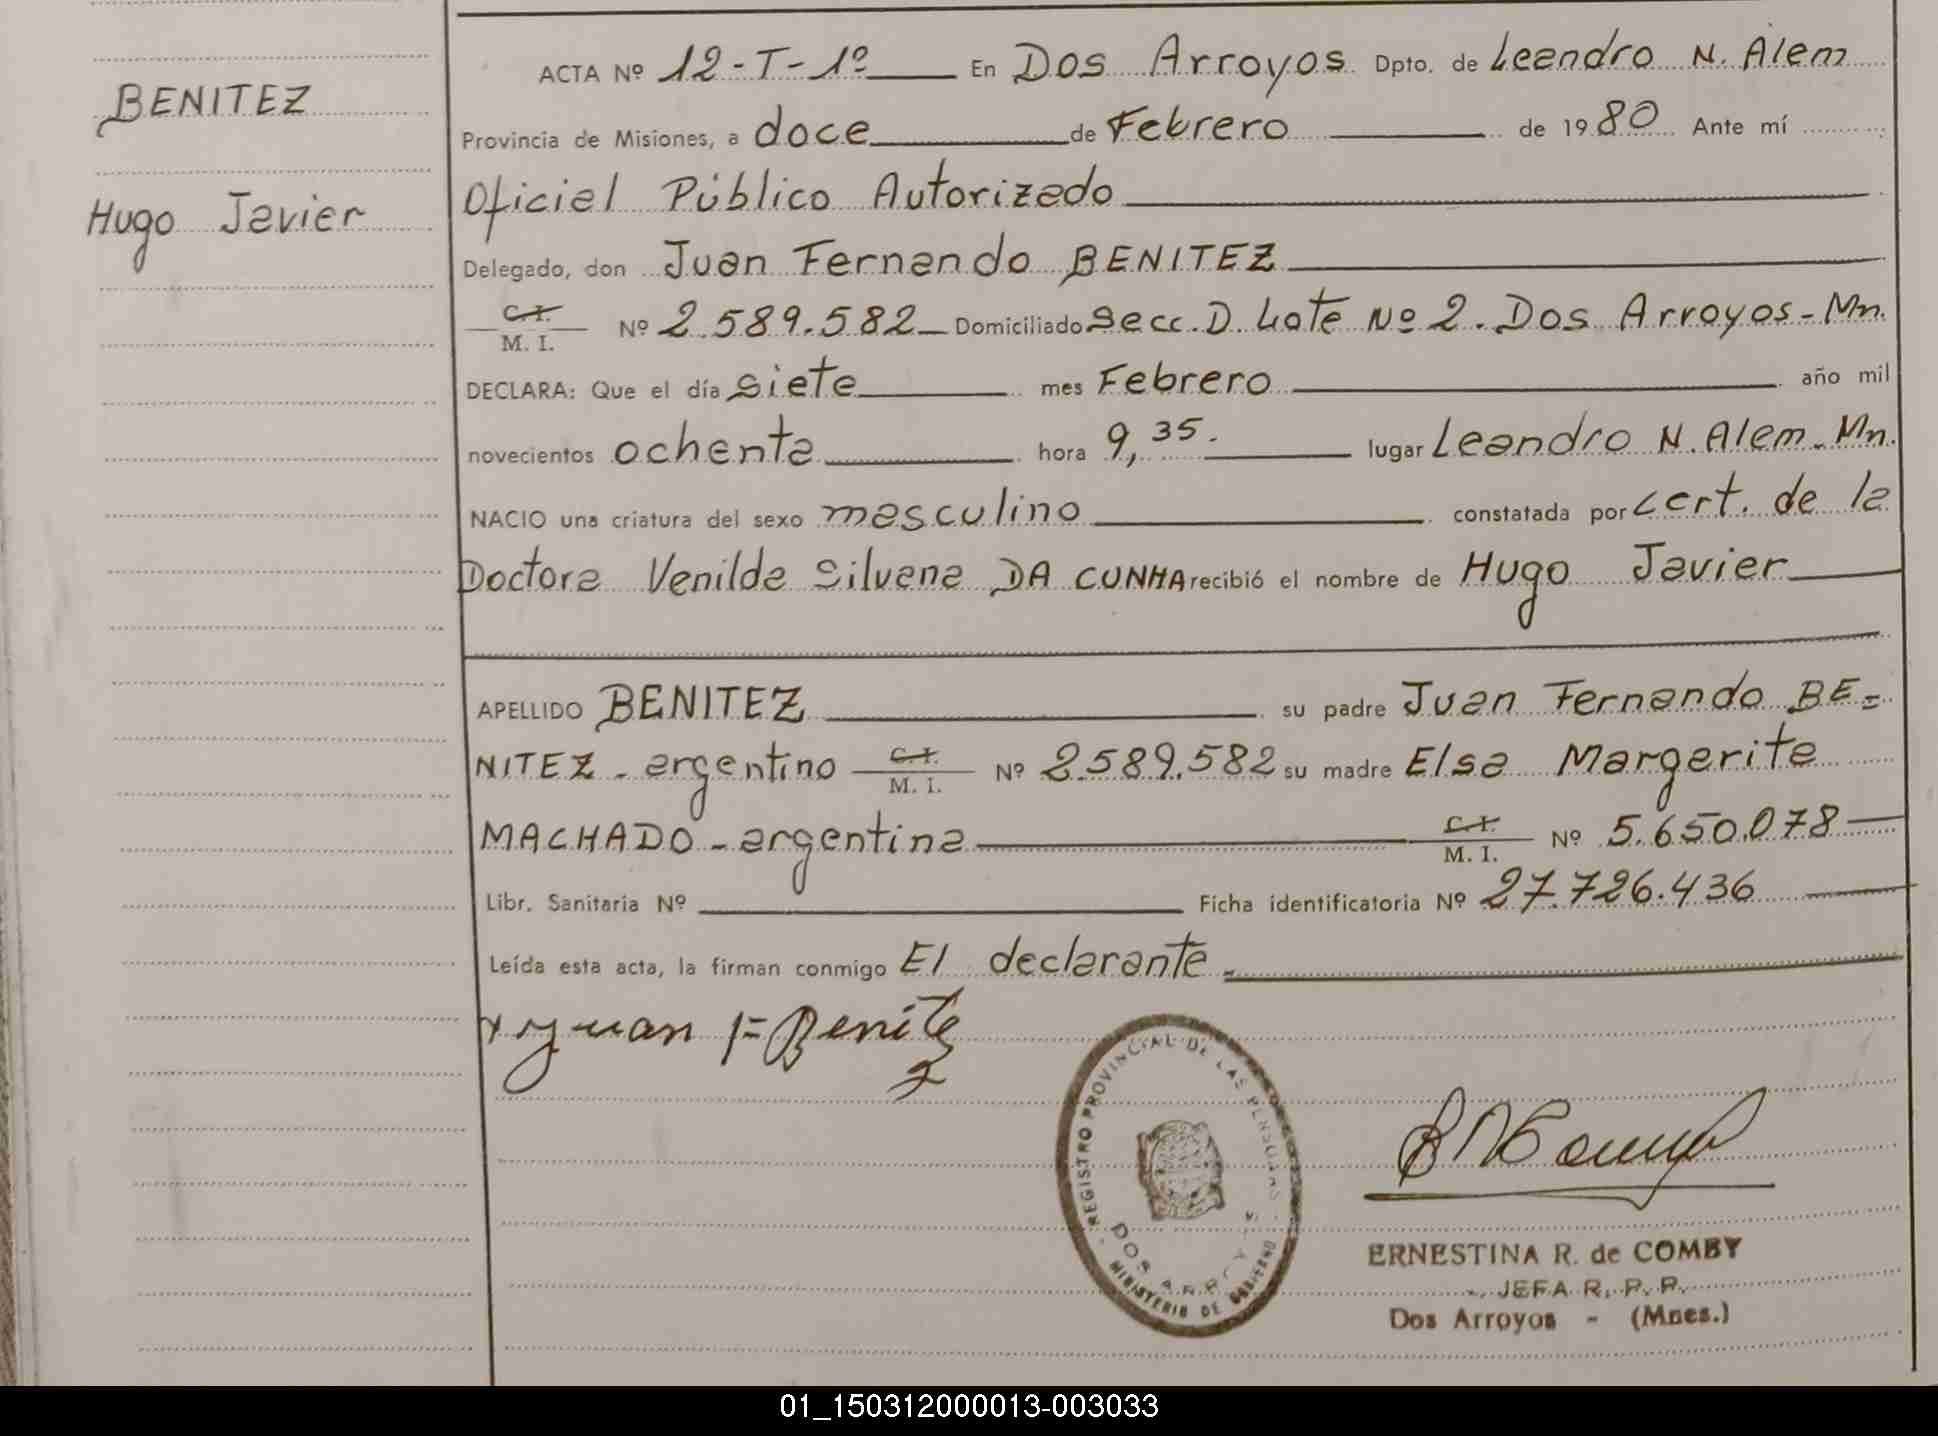 BENITEZ
Hugo Javier
ACTA Nº 12-T-1º En Dos Arroyos Dpto. de Leandro N. Alem
Provincia de Misiones, a doce de Febrero de 1980 Ante mí
Oficial Público Autorizado
Delegado, don Juan Fernando BENITEZ
C.I.
M. I. Nº 2.589.582 Domiciliado Secc. D. Lote Nº 2. Dos Arroyos - Mn.
DECLARA: Que el día siete mes Febrero año mil
novecientos ochenta hora 9,35. lugar Leandro N. Alem - Mn.
NACIO una criatura del sexo masculino constatada por cert. de la
Doctora Venilda Silvana DA CUNHA recibió el nombre de Hugo Javier
APELLIDO BENITEZ su padre Juan Fernando BE=
NITEZ - argentino C.I. M. I. Nº 2.589.582 su madre Elsa Margarita
MACHADO - argentina C.I. M. I. Nº 5.650.078
Libr. Sanitaria Nº Ficha identificatoria Nº 27.726.436
Leída esta acta, la firman conmigo El declarante -
x Juan F Benitez
REGISTRO PROVINCIAL DE LAS PERSONAS
DOS ARROYOS
MINISTERIO DE GOBIERNO
ERNESTINA R. de COMBY
JEFA R. P. P.
Dos Arroyos - (Mnes.)
01_150312000013-003033